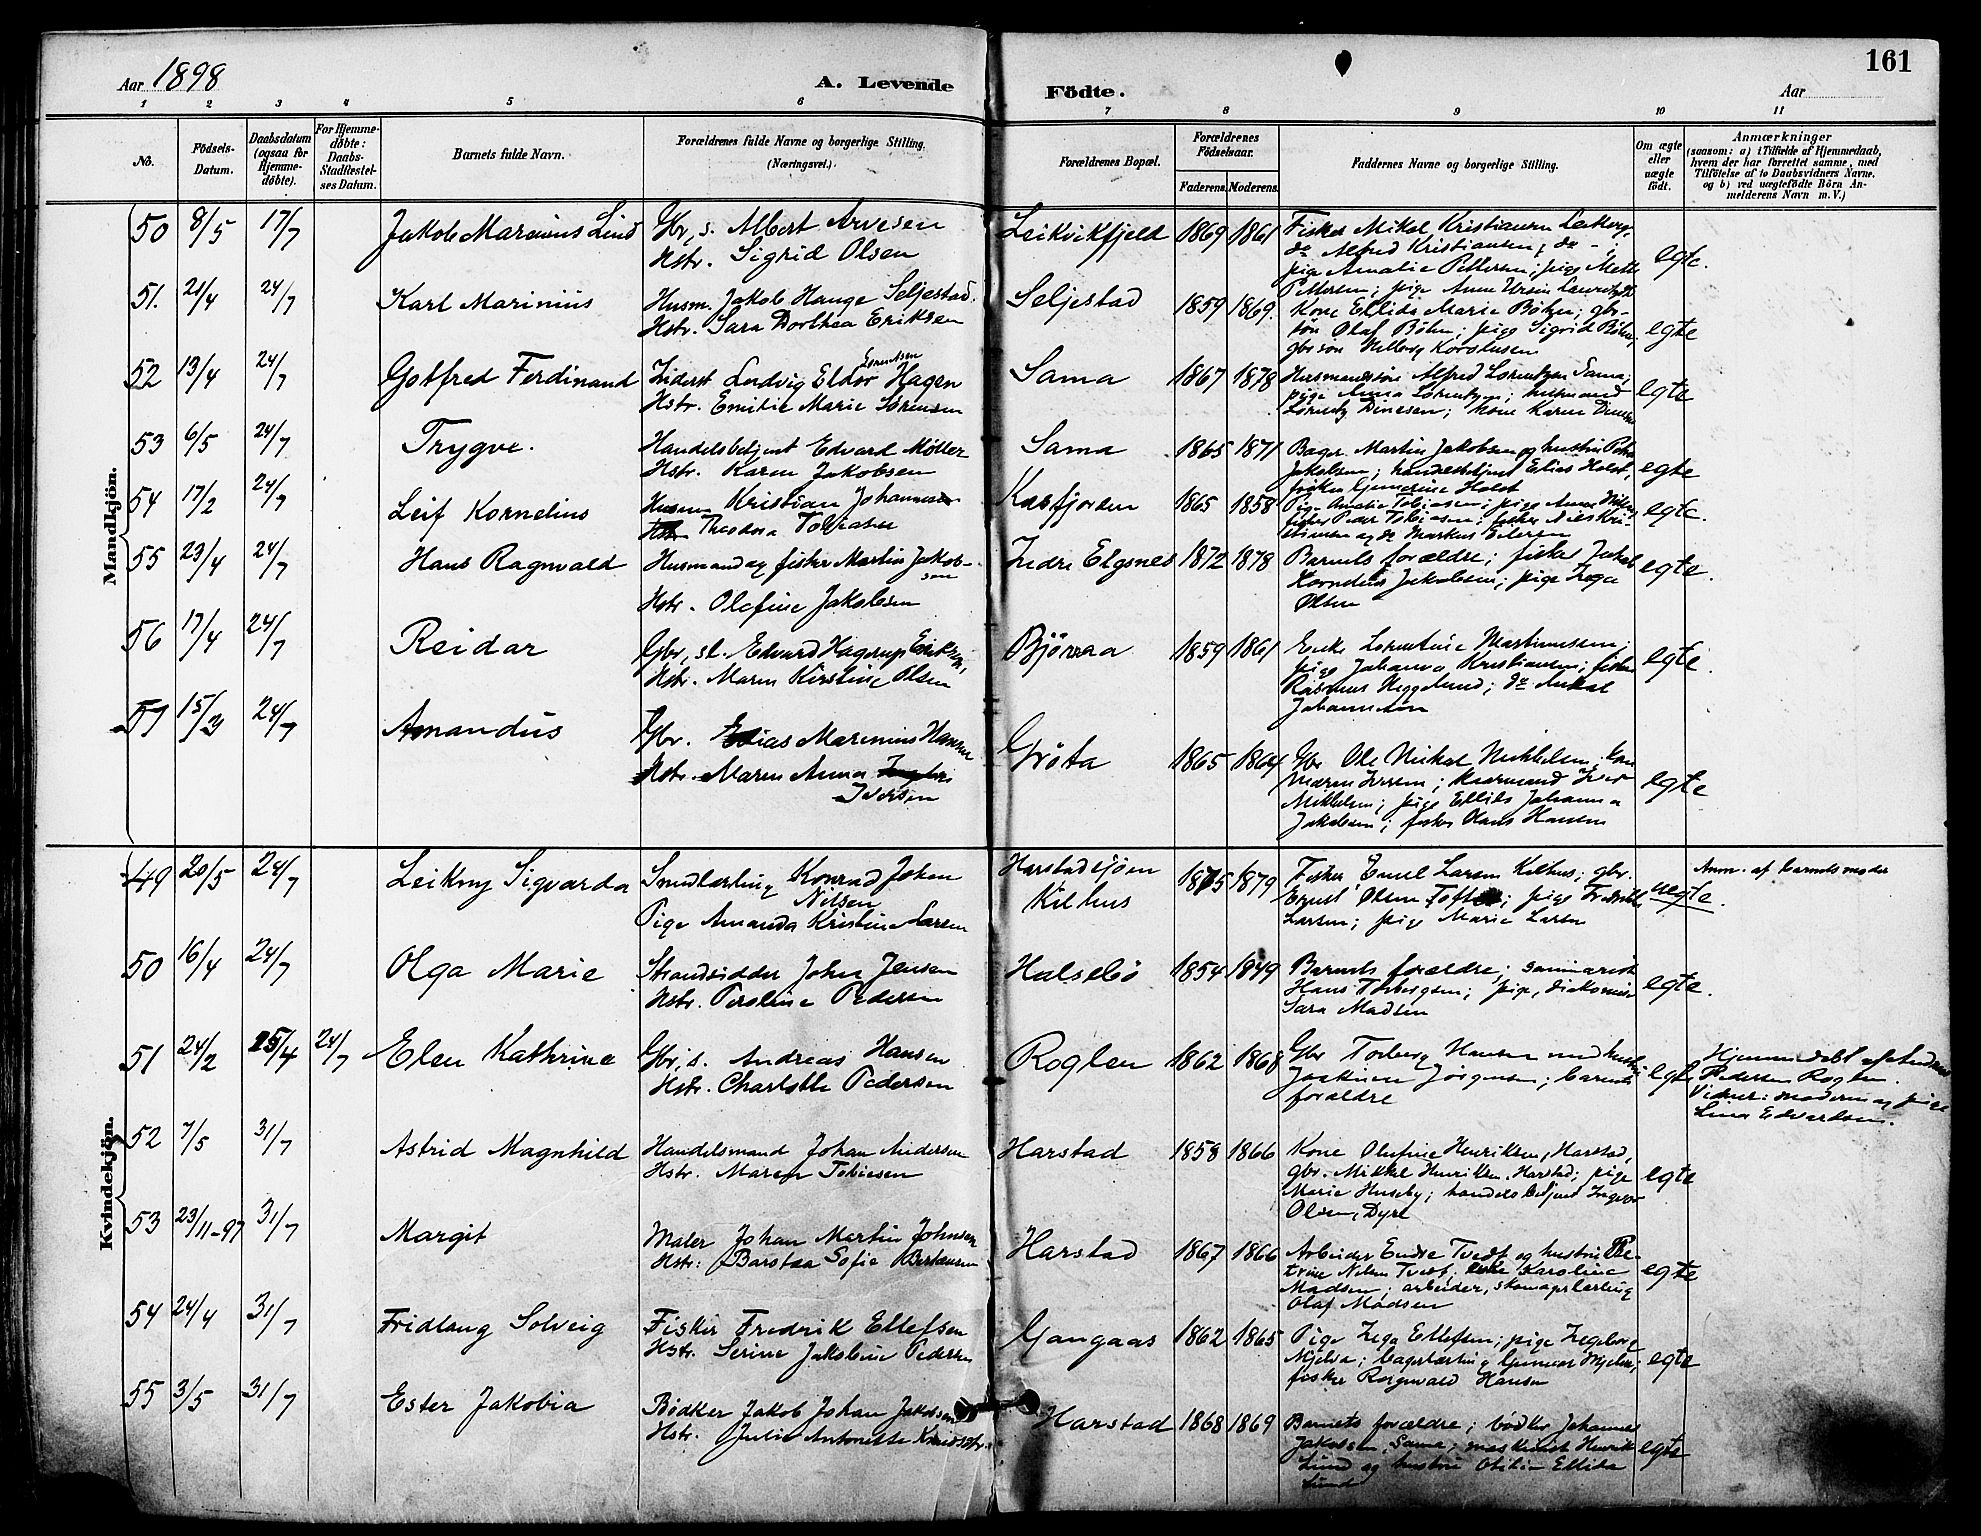 Aar 1898
A. Levende Födte.
161
Aar
1 2 3 4 5 6 7 8 9 10 11
No.
Födsels-Datum.
Daabsdatum (ogsaa for Hjemme-døbte).
For Hjemme-døbte: Daabs-Stadfæstel-ses Datum.
Barnets fulde Navn.
Forældrenes fulde Navne og borgerlige Stilling. (Næringsvei.)
Forældrenes Bopæl.
Forældrenes Födselsaar.
Faderens. Moderens.
Faddernes Navne og borgerlige Stilling.
Om ægte eller uægte födt.
Anmærkninger
(saasom: a) i Tilfælde af Hjemmedaab,
hvem der har forrettet samme, med
Tilföielse af to Daabsvidners Navne.
og b) ved uægtefödte Börn An-
melderens Navn m. V.)
Mandkjön.
50 8/5 17/7 Jakob Marinius Lind Gbr, s. Albert Arvesen Leikvikfjeld 1869 1861 Fisker Mikal Kristiansen
Hstr. Sigrid Olsen do Alfred Kristiansen; do - ; egte.
pige Amalie Pettersen; pige Mette
Pettersen; pige Anne
51. 21/4 24/7 Karl Marinius Husm. Jakob Hauge Seljestad. Seljestad 1859 1869. Kone Ellida Marie Böhn; gbr-
Hstr. Sara Dorthea Eriksen sön Olaf Böhn; pige Sigrid Böhn; egte
gbrsön
52 13/4 24/7 Gotfred Ferdinand Inderst Ludvig Eldor Hagen Sama 1867 1878 Husmandssön Alfred Lorentzen Sama;
Hstr. Emilie Marie Sörensen pige Anna Lorentzen; husmand egte
Lorentz Dinesen; kone Karen
53 6/5 24/7 Trygve. Handelsbetjent Edvard Møller Sama 1865 1871 Bager Martin Jakobsen og hustru
Hstr. Karen Jakobsen Jakobsen; handelsbetjent Elias Holst, egte
Holst
54 17/2 24/7 Leif Kornelius Husm Kristian Johannesen Kasfjorden 1865 1858 Pige Amalie Tobiasen; pige Anna
Hstr Theodora Tobiasen fisker Peder Tobiasen; fisker Nils Kri- egte.
stiansen og do Markus
55 23/4 24/7 Hans Ragnvald Husmand og fisker Martin Jakob- Indre Elgsnes 1872 1878 Barnets forældre; fisker Jakob
sen Kornelius Jakobsen; pige Inga egte.
Hstr. Olefine Jakobsen Olsen
56 17/4 24/7 Reidar Gbr, sl. Edvard Hagerup Eriksen, 1859 1861 Enke Lorentine Martinussen;
Hstr. Maren Kirstine Olsen pige Johanna Kristiansen; fisker egte.
Rasmus Heggelund; do Mikal
Johannesen
57 15/3 24/7 Amandus Gbr. Elias Marinius Hansen Gröta 1865 1864 Gbr Ole Nikal Mikkelsen,
Hstr. Maren Anna Maren Iversen; Iver egte
Iversen Mikkelsen; pige Ellids Johanna
Jakobsen; fisker Hans Hansen
Kvindekjön.
49 20/5 24/7 Leikny Sigvarda Smedlærling Konrad Johan Harstadsjöen 1875 1879 Fisker Emil Larsen Kilhus; gbr. Anm. af barnets moder
Nilsen Kilhus Ernst Olsen; pige Fredrikke uegte.
Pige Amanda Kristine Larsen Larsen; pige Marie Larsen
50 16/4 24/7 Olga Marie Strandsidder John Jensen Halsebö 1854 1849 Barnets forældre; seminarist
Hstr. Peroline Pedersen Hans Torbergsen; pige, diakonisse egte.
Sara Madsen
51 24/2 25/4 24/7 Elen Kathrine Gbr, s. Andreas Hansen Roglen 1862 1868 Gbr Torberg Hansen med hustru Hjemmedöbt af Andreas
Hstr. Charlotte Pedersen Joakime Jörgensen; barnets egte Pedersen Roglen.
forældre Vidner: moderen og pige
Lina Edvardsen.
52 7/5 31/7 Astrid Magnhild Handelsmand Johan Andersen Harstad 1858 1866 Kone Olufine Henriksen, Harstad,
Hstr. Maren Tobiesen gbr. Mikkel Henriksen, Harstad; pige egte
Marie Huseby; handelsbetjent Ingvar
Olsen, Dyre
53 23/11-97 31/7 Margit Maler Johan Martin Johnsen Harstad 1867 1866 Arbeider Endre Tvedt og hustru Pe-
Hstr: Barstaa Sofie Berntsen trine Nilsen Tvedt, enke Karoline egte
Madsen; arbeider, skomagerlærling
Olaf Madsen
54 24/4 31/7 Fridlaug Solveig Fisker Fredrik Ellefsen Gangaas 1862 1865 Pige Inga Ellefsen; pige Ingeborg
Hstr. Serine Jakobine Pedersen Mjelva; bagerlærling Gunvar Mjelva; egte
fisker Ragnvald Hansen
55 3/5 31/7 Ester Jakobia Bödker Jakob Johan Jakobsen Harstad 1868 1869 Barnets forældre; bödker Johannes
Hstr. Julie Antonette Jakobsen, Sama; maskinist Henrik egte
Lund og hustru Otilie Ellida
Lund